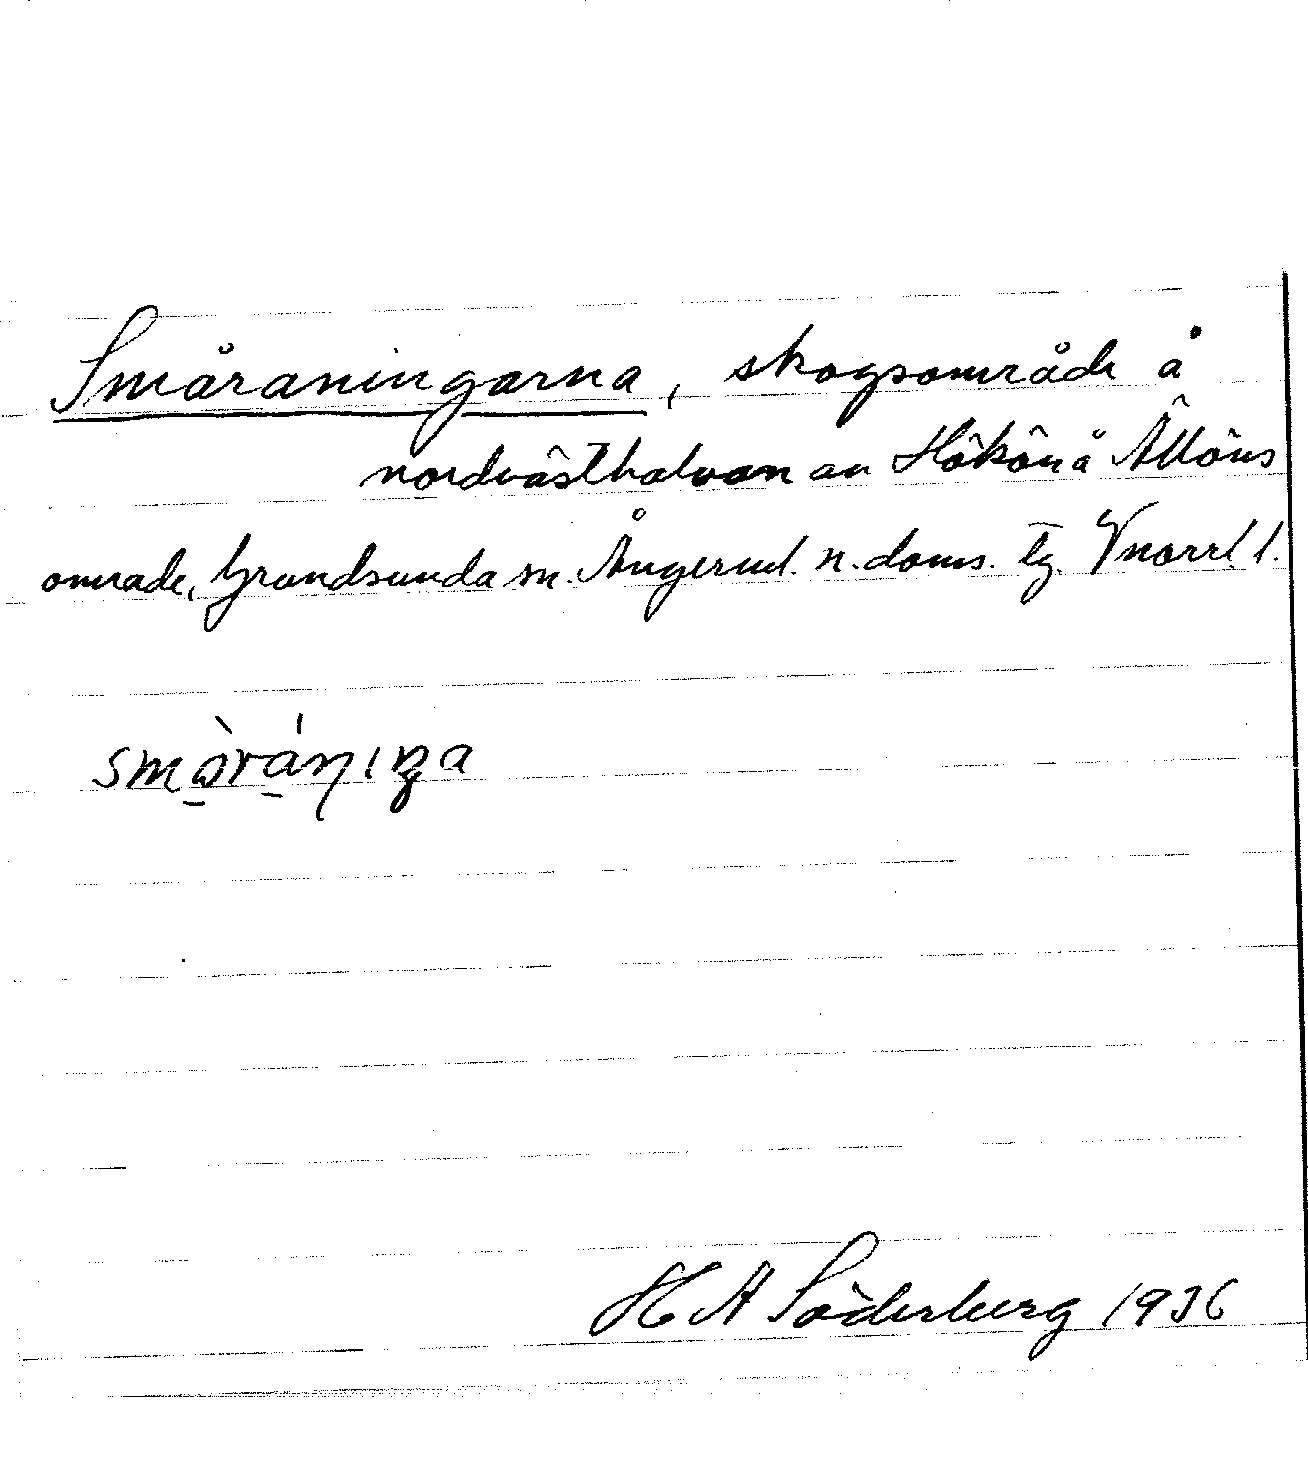 Småraningarna, skogsområde å
nordvästhalvan av Hökön å Ällöns
område, Grundsunda sn. Ångerml. n. doms. tg. Vnorrl l.
småránıŋa
H A Söderberg 1936